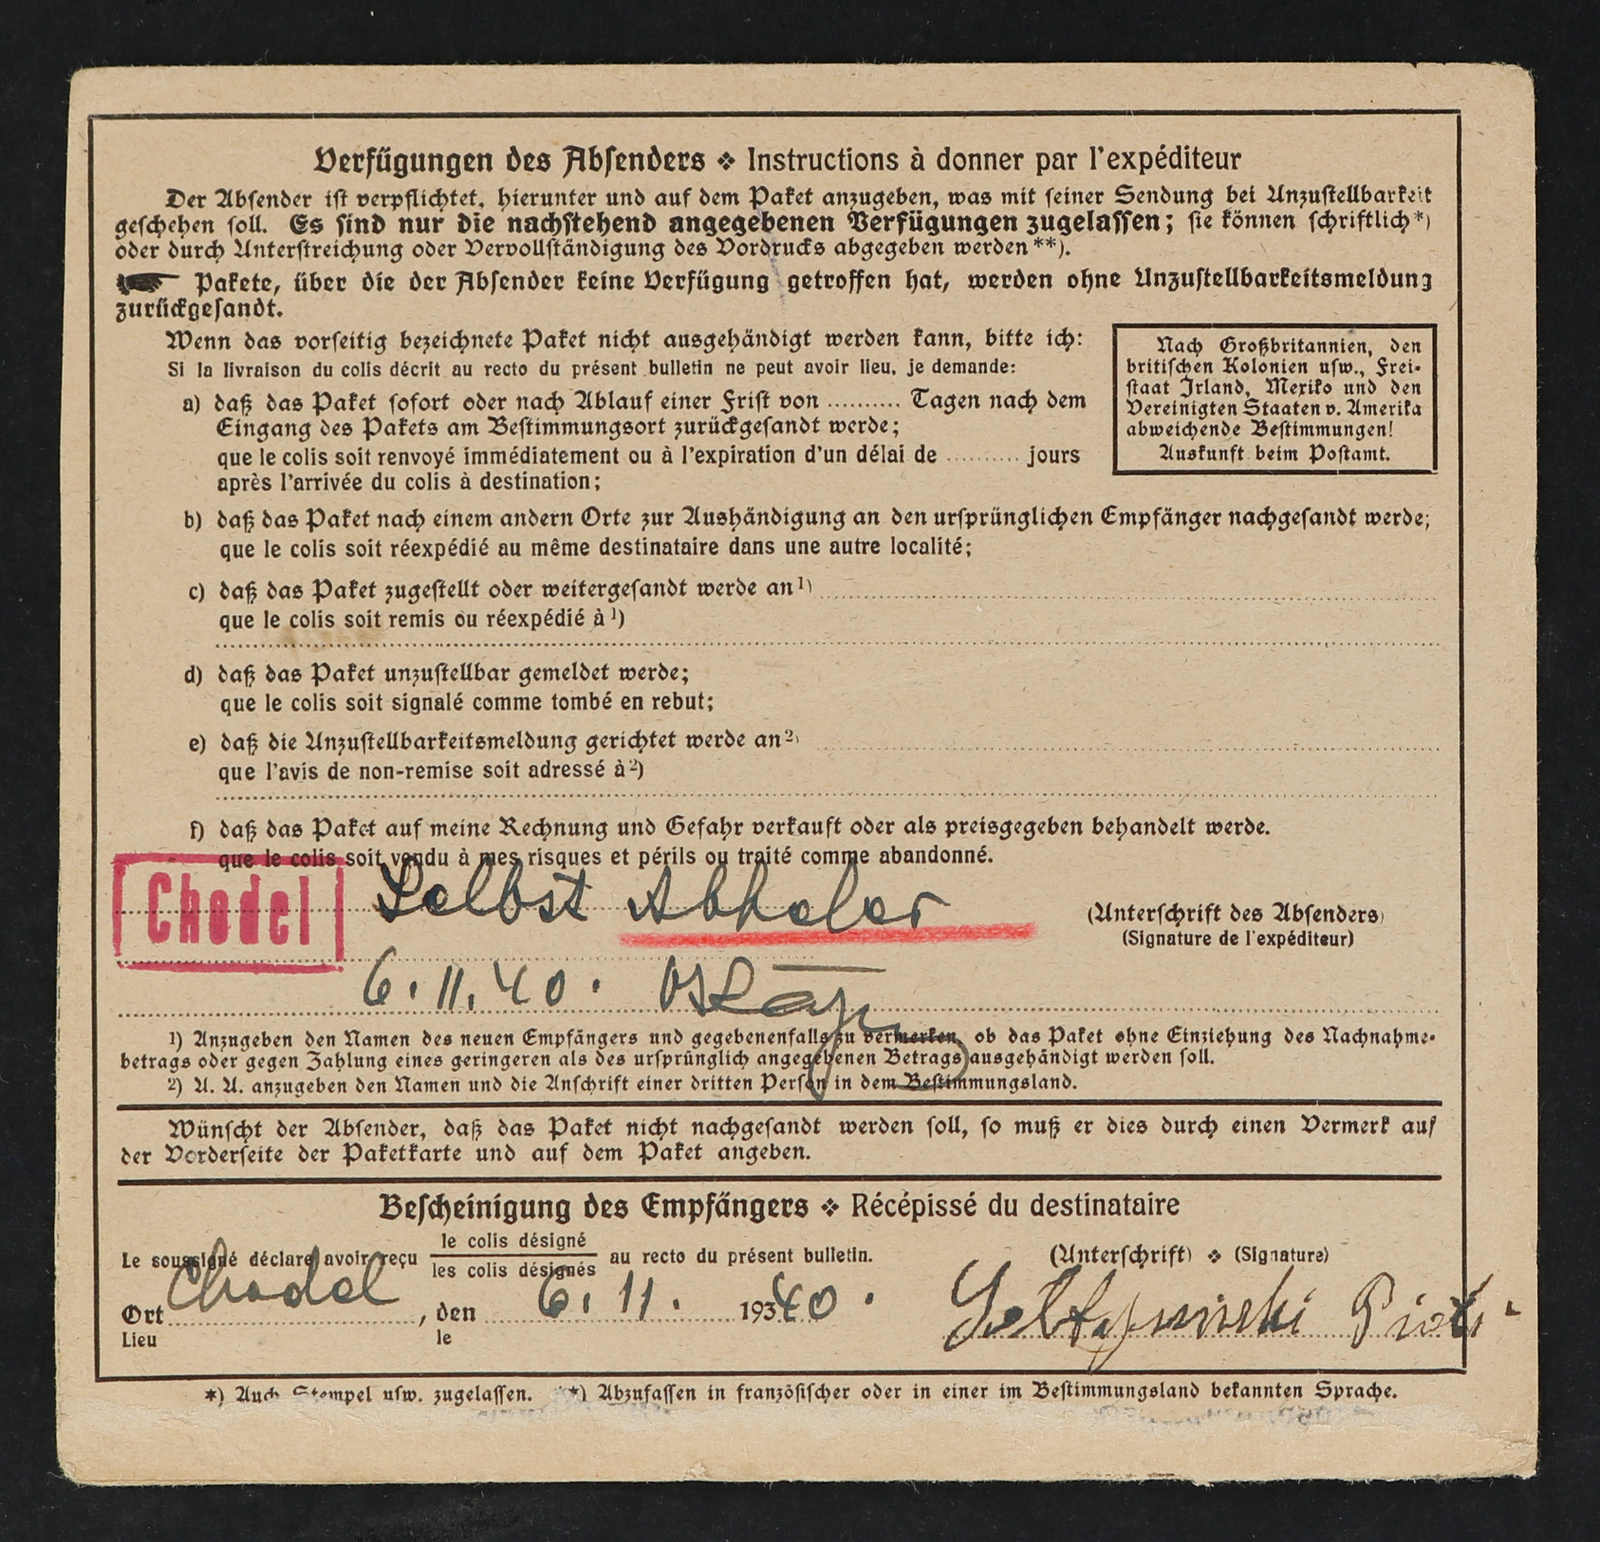 Verfügungen des Absenders ❖ Instructions à donner par l'expéditeur
Der Absender ist verpflichtet, hierunter und auf dem Paket anzugeben, was mit seiner Sendung bei Unzustellbarkeit
geschehen soll. Es sind nur die nachstehend angegebenen Verfügungen zugelassen; sie können schriftlich*)
oder durch Unterstreichung oder Vervollständigung des Vordrucks abgegeben werden**).
Pakete, über die der Absender keine Verfügung getroffen hat, werden ohne Unzustellbarkeitsmeldung
zurückgesandt.
Wenn das vorseitig bezeichnete Paket nicht ausgehändigt werden kann, bitte ich:
Si la livraison du colis décrit au recto du présent bulletin ne peut avoir lieu, je demande:
a) daß das Paket sofort oder nach Ablauf einer Frist von .......... Tagen nach dem
Eingang des Pakets am Bestimmungsort zurückgesandt werde;
que le colis soit renvoyé immédiatement ou à l'expiration d'un délai de .......... jours
après l'arrivée du colis à destination;
Nach Großbritannien, den
britischen Kolonien usw., Frei-
staat Irland, Mexiko und den
Vereinigten Staaten v. Amerika
abweichende Bestimmungen!
Auskunft beim Postamt.
b) daß das Paket nach einem andern Orte zur Aushändigung an den ursprünglichen Empfänger nachgesandt werde;
que le colis soit réexpédié au même destinataire dans une autre localité;
c) daß das Paket zugestellt oder weitergesandt werde an 1)
que le colis soit remis ou réexpédié à 1)
d) daß das Paket unzustellbar gemeldet werde;
que le colis soit signalé comme tombé en rebut;
e) daß die Unzustellbarkeitsmeldung gerichtet werde an 2)
que l'avis de non-remise soit adressé à 2)
f) daß das Paket auf meine Rechnung und Gefahr verkauft oder als preisgegeben behandelt werde.
que le colis soit vendu à mes risques et périls ou traité comme abandonné.
Chodel Selbst Abholer
(Unterschrift des Absenders)
(Signature de l'expéditeur)
6.11.40.
1) Anzugeben den Namen des neuen Empfängers und gegebenenfalls zu vermerken, ob das Paket ohne Einziehung des Nachnahme-
betrags oder gegen Zahlung eines geringeren als des ursprünglich angegebenen Betrags ausgehändigt werden soll.
2) U. U. anzugeben den Namen und die Anschrift einer dritten Person in dem Bestimmungsland.
Wünscht der Absender, daß das Paket nicht nachgesandt werden soll, so muß er dies durch einen Vermerk auf
der Vorderseite der Paketkarte und auf dem Paket angeben.
Bescheinigung des Empfängers ❖ Récépissé du destinataire
Le soussigné déclare avoir reçu le colis désigné
les colis désignés au recto du présent bulletin.
(Unterschrift) ❖ (Signature)
Ort Chodel, den 6. 11. 19340.
Lieu le
*) Auch Stempel usw. zugelassen. **) Abzufassen in französischer oder in einer im Bestimmungsland bekannten Sprache.